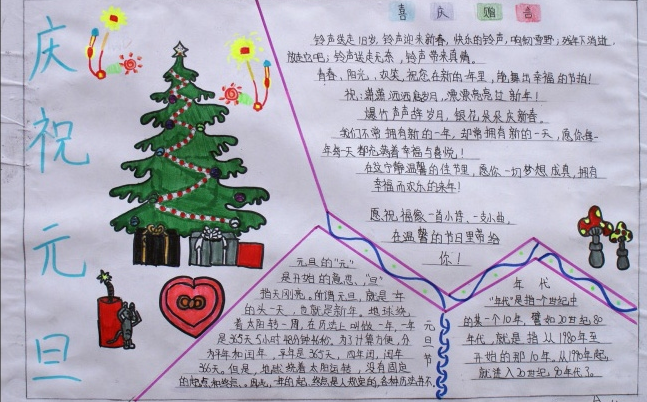 庆祝元旦
喜庆贺音
铃声送走旧岁,铃声迎来新春,快乐的铃声,响彻寰野;残年不消逝
放走它吧;铃声送走无奈,铃声带来真情。
青春,阳光,欢笑,祝您在新的一年里,能舞出幸福的节拍!
祝:潇潇洒洒辞岁月,漂漂亮亮过新年!
爆竹声声辞岁月,银花朵朵庆新春。
我们不常拥有新的一年,却常拥有新的一天,愿你每
年每天都充满着幸福与喜悦!
在这宁静温馨的佳节里,愿你一切梦想成真,拥有
幸福而欢乐的来年!
愿祝福像一首小诗、一支小曲,
在温馨的节日里带给
你!
元旦的“元”
是开始的意思、“旦”
指天刚亮。所谓元旦,就是一年
的头一天,也就是新年。地球绕
着太阳转一周,在历法上叫做一年,一年
是365天5小时48分46秒,为了计算方便,分
为平年和闰年,平年是365天,四年闰,闰年
366天。但是,地球绕着太阳运转,没有固定
的起点和终点。因此,一年的起、终点是人规定的,各种历法并不
元旦节
年代
“年代”是指一个世纪中
的某一个10年,譬如20世纪80
年代,就是指从1980年至
开始的那10年。从1990年起,
就进入20世纪90年代了。